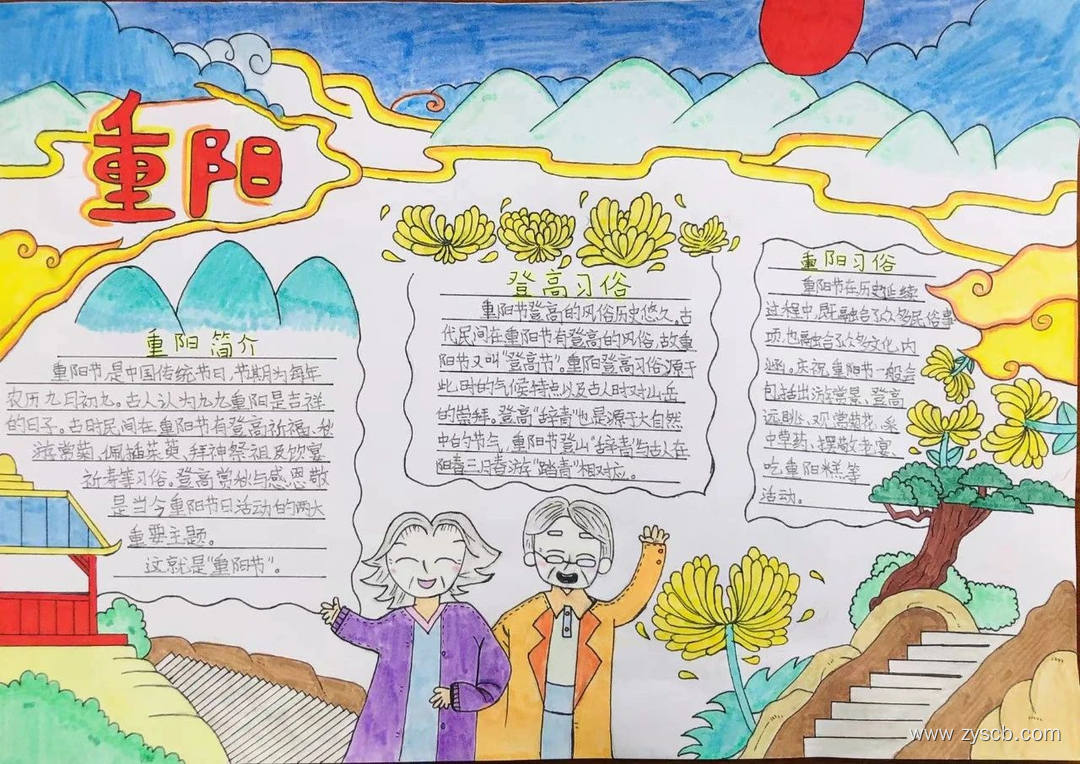 重阳
重阳简介
重阳节,是中国传统节日,节期为每年
农历九月初九。古人认为九九重阳是吉祥
的日子。古时民间在重阳节有登高祈福、秋
游赏菊、佩插茱萸、拜神祭祖及饮宴
祈寿等习俗。登高赏秋与感恩敬
是当今重阳节日活动的两大
重要主题。
这就是“重阳节”。
登高习俗
重阳节登高的风俗历史悠久。古
代民间在重阳节有登高的风俗,故重
阳节又叫“登高节”。重阳登高习俗源于
此时的气候特点以及古人时对山岳
的崇拜。登高“辞青”也是源于大自然
中的节气,重阳节登山“辞青”与古人在
阳春三月春游“踏青”相对应。
重阳习俗
重阳节在历史延续
过程中,既融合了众多民俗事
项,也融合了众多文化内
涵。庆祝重阳节一般会
包括出游赏景、登高
远眺、观赏菊花、采
中草药、摆敬老宴、
吃重阳糕等
活动。
www.zyscb.com